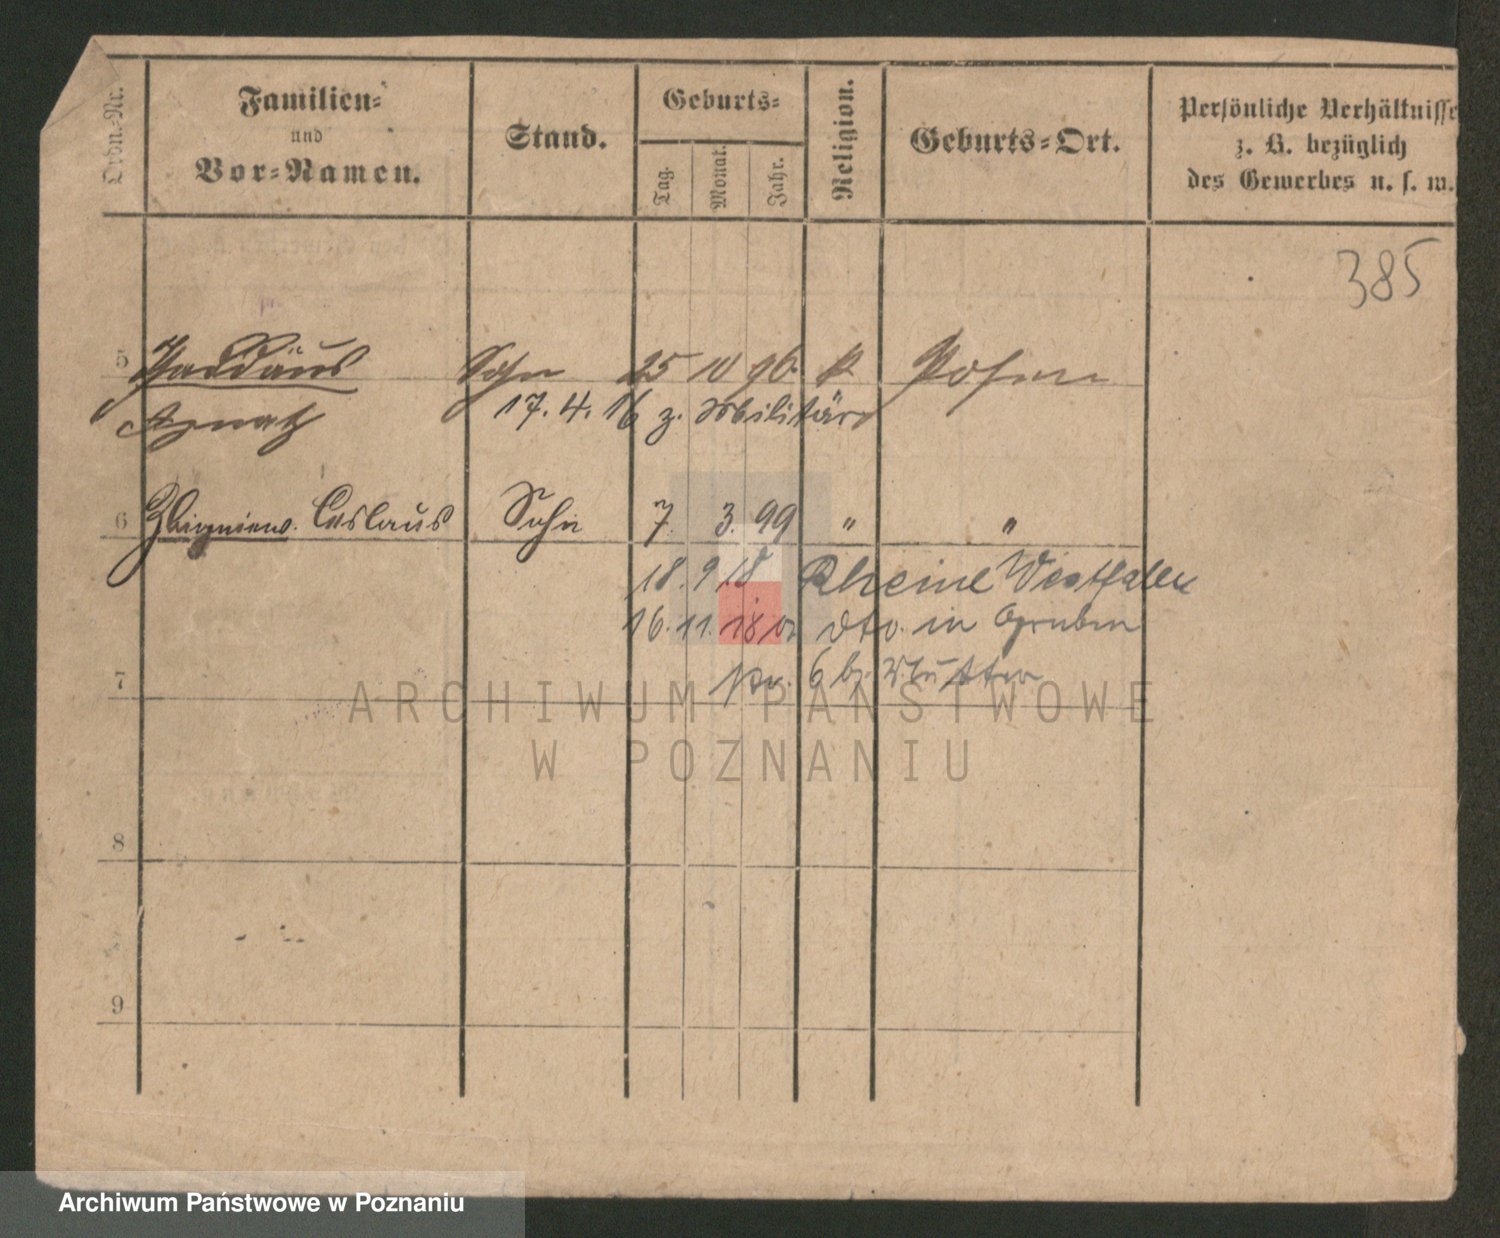 Ordn.-Nr.
Familien-
und
Vor-Namen.
Stand.
Geburts-
Tag.
Monat.
Jahr.
Religion.
Geburts-Ort.
Persönliche Verhältnisse
z. B. bezüglich
des Gewerbes u. s. w.
385
5 Thaddäus Sohn 25 10 96 k Posen
Ignatz 17. 4. 16 z. Militär
6 Zbigniew. Ceslaus Sohn 7. 3. 99 " "
18. 9 18 Rheine Westfalen
16. 11. 18 dto. in
6 b. Mutter
7
8
9
ARCHIWUM PAŃSTWOWE
W POZNANIU
Archiwum Państwowe w Poznaniu